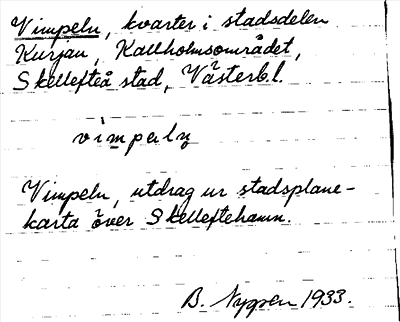 Vimpeln, kvarter i stadsdelen
Kurjan, Kallholmsområdet,
Skellefteå stad, Västerb.l.
vimpeln
Vimpeln, utdrag ur stadsplane-
karta över Skelleftehamn.
B. Nygren 1933.